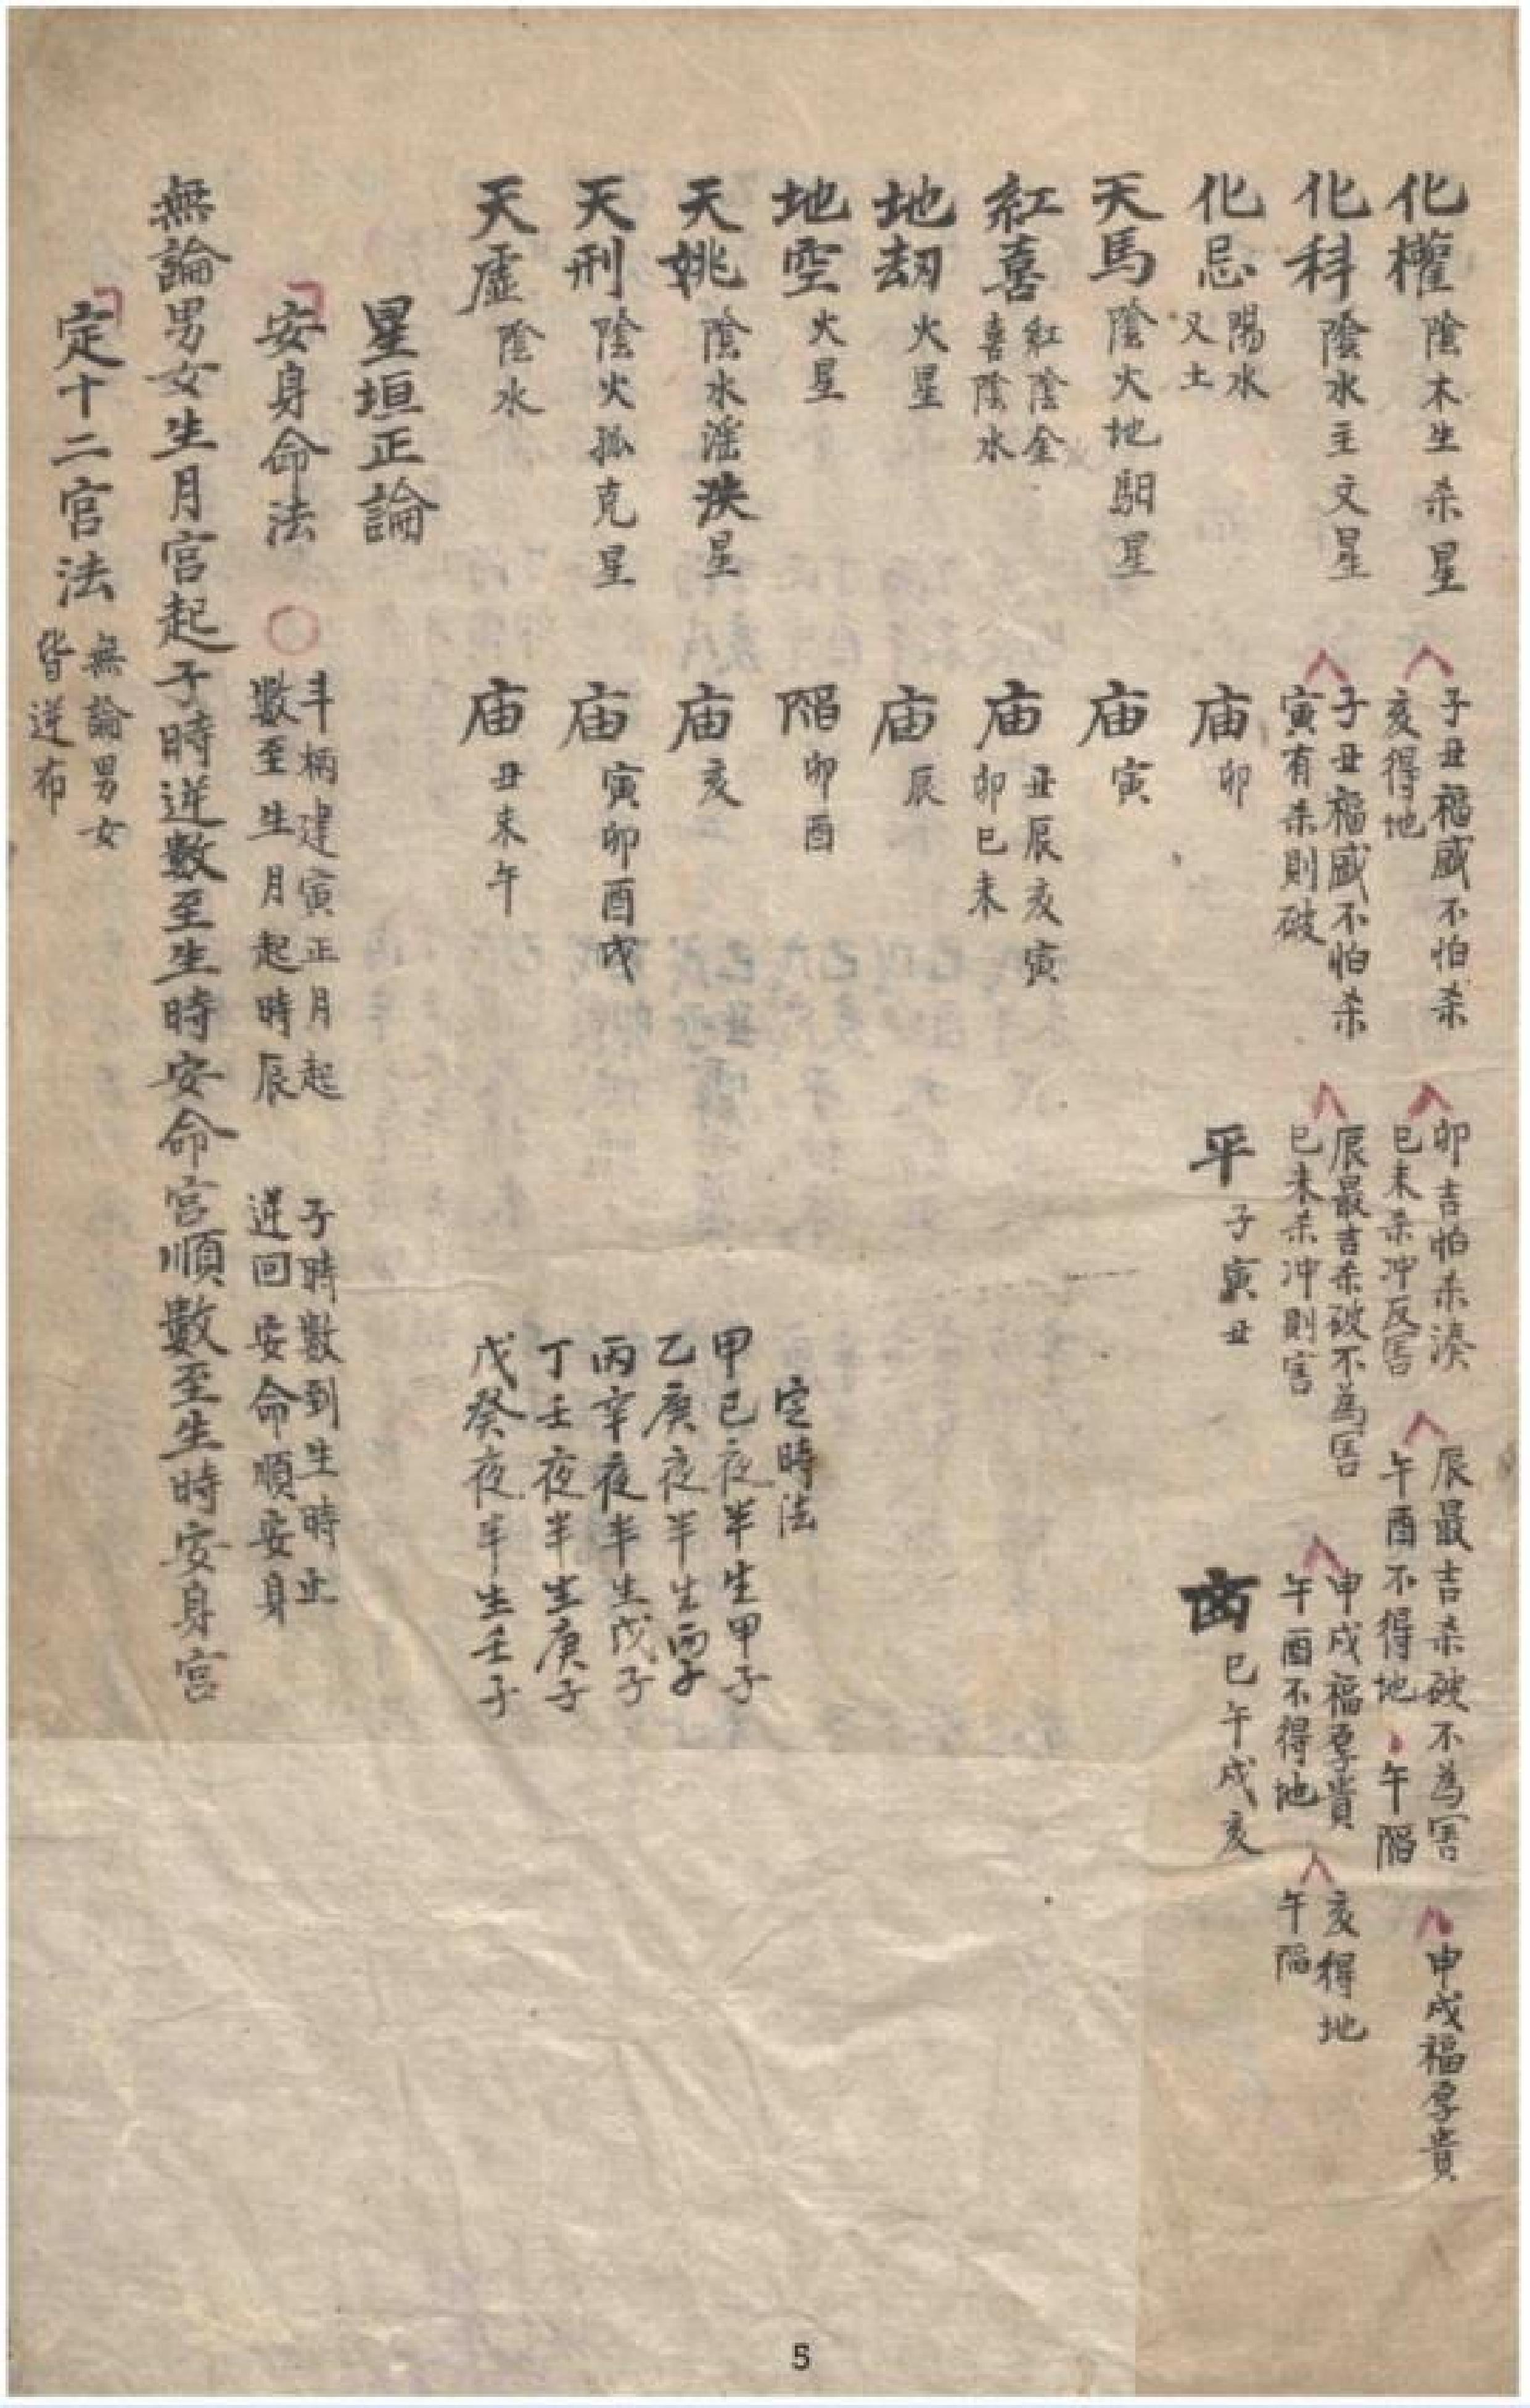 化權 陰木生杀星 子丑福盛不怕杀 亥得地 卯吉怕杀湊 巳未杀冲反害 辰最吉杀破不為害 午酉不得地 午陷 申戌福厚貴
化科 陰水主文星 子丑福盛不怕杀 寅有杀則破 辰最吉杀破不為害 巳未杀冲則害 申戌福厚貴 午酉不得地 亥得地 午陷
化忌 陽水 又土 庙 卯 平 子寅丑 巳午戌亥
天馬 陰火地馹星 庙 寅
紅喜 紅陰金 喜陰水 庙 丑辰亥寅 卯巳未
地刼 火星 庙 辰
地空 火星 陷 卯酉
定時法
天姚 陰水滛泆星 庙 亥
甲己夜半生甲子
乙庚夜半生丙子
天刑 陰火孤克星 庙 寅卯酉戌
丙辛夜半生戊子
丁壬夜半生庚子
天虛 陰水 庙 丑未午
戊癸夜半生壬子
星垣正論
安身命法 〇 斗柄建寅正月起 數至生月起時辰 子時數到生時止 逆回安命順安身
無論男女生月宮起子時逆數至生時安命宮順數至生時安身宮
定十二宮法 無論男女 皆逆布
5